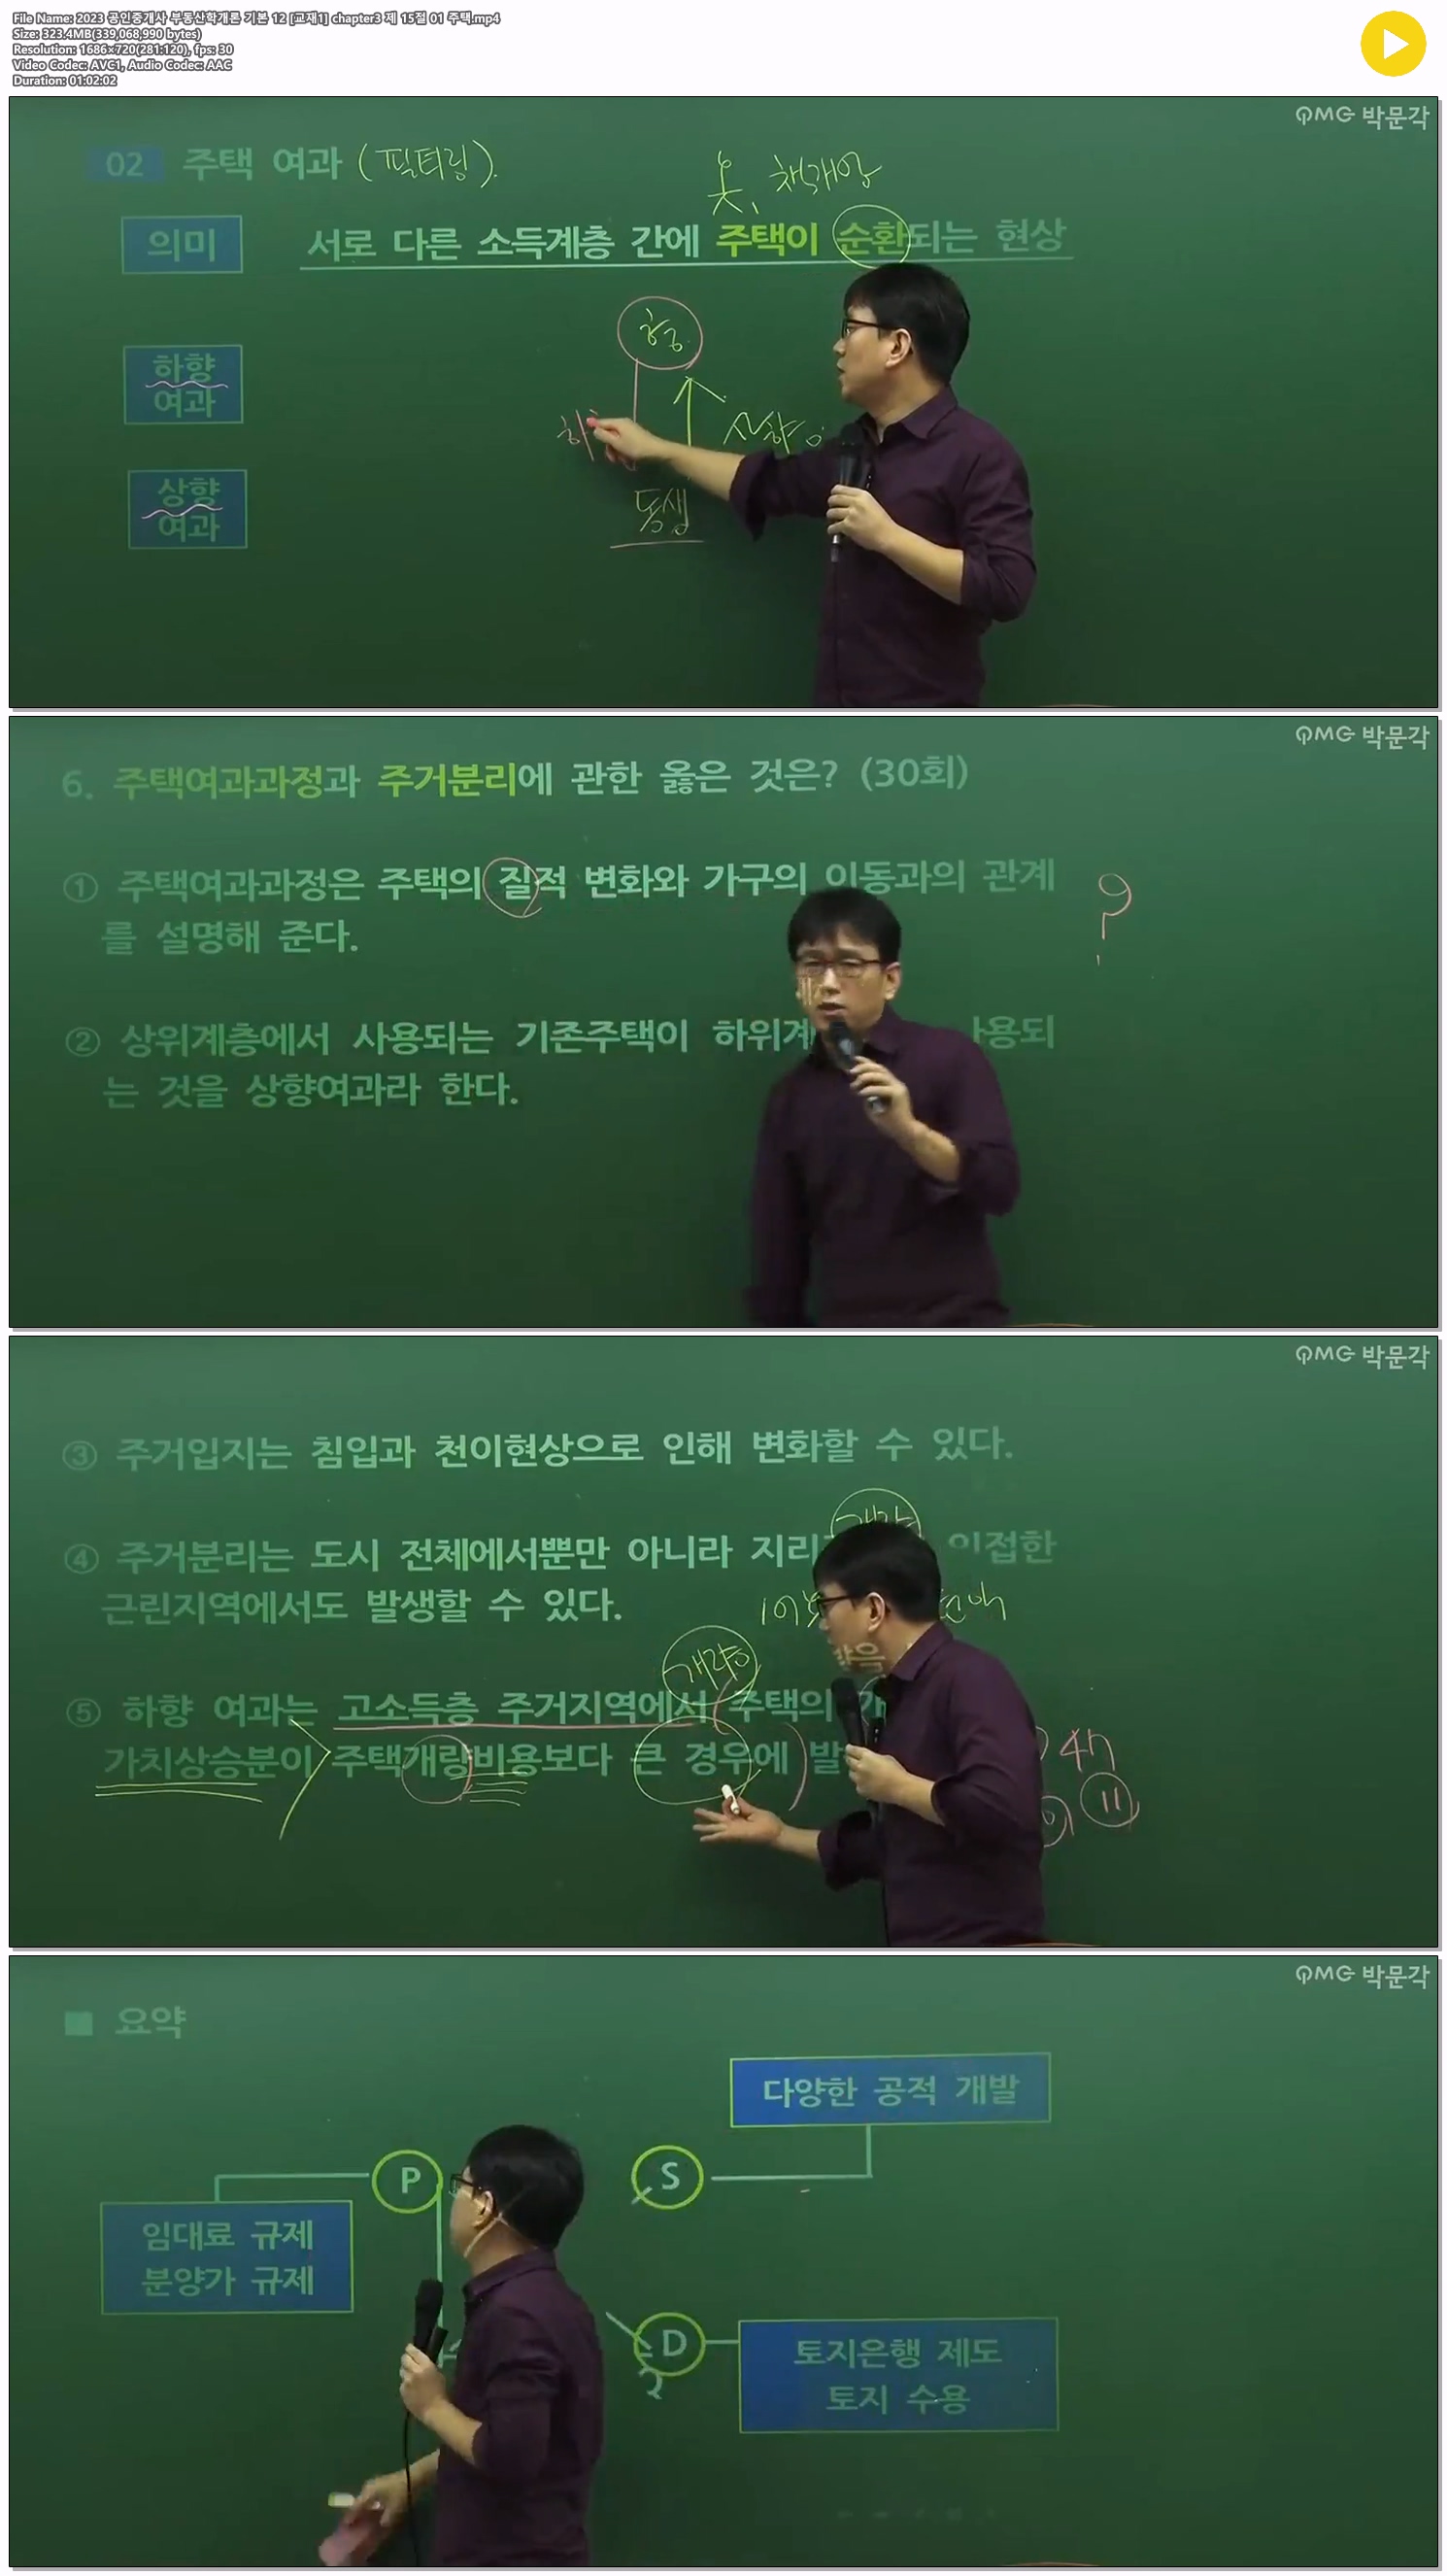 File Name: 2023 공인중개사 부동산학개론 기본 12 [교재1] chapter3 제 15절 01 주택.mp4
Size: 323.4MB(339,068,990 bytes)
Resolution: 1686×720(281:120), fps: 30
Video Codec: AVC1, Audio Codec: AAC
Duration: 01:02:02
PMG 박문각
02 주택 여과 (필터링).
옷, 책가방
의미 서로 다른 소득계층 간에 주택이 순환되는 현상
하향
여과
상향
여과
동생
PMG 박문각
6. 주택여과과정과 주거분리에 관한 옳은 것은? (30회)
① 주택여과과정은 주택의 질적 변화와 가구의 이동과의 관계
를 설명해 준다.
?
② 상위계층에서 사용되는 기존주택이 하위계 사용되
는 것을 상향여과라 한다.
PMG 박문각
③ 주거입지는 침입과 천이현상으로 인해 변화할 수 있다.
④ 주거분리는 도시 전체에서뿐만 아니라 지리 인접한
근린지역에서도 발생할 수 있다.
개량
⑤ 하향 여과는 고소득층 주거지역에서 주택의
가치상승분이 주택개량비용보다 큰 경우에 발
11
PMG 박문각
■ 요약
다양한 공적 개발
P
S
임대료 규제
분양가 규제
D
토지은행 제도
토지 수용